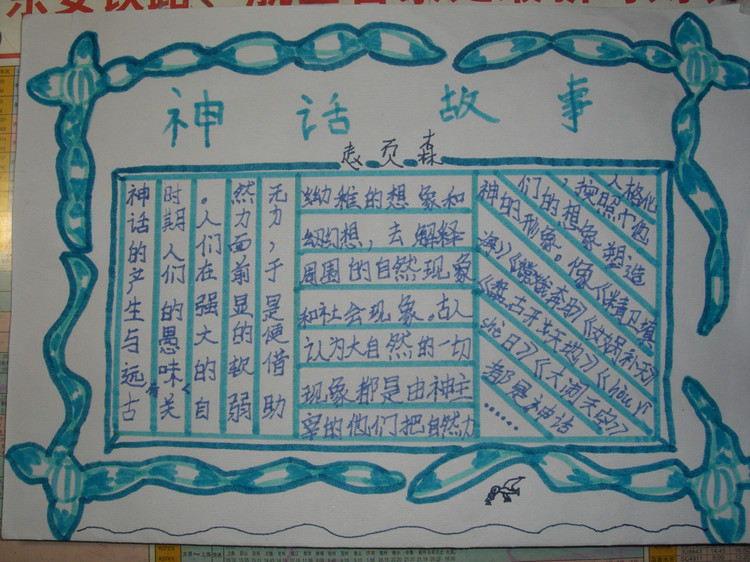 神话故事
神话的产生与远古
时期人们的愚昧有关
。人们在强大的自
然力面前显的软弱
无力，于是便借助
幼稚的想象和
幻想，去解释
周围的自然现象
和社会现象。古人
认为大自然的一切
现象都是由神主
宰的他们把自然力
人格化
，按照个他
们的想象塑造
神的形象。像《精卫填
海》《嫦娥奔月》《女娲补天
》《盘古开天地》《hou yi
she日》《大闹天空》
都是神话
……